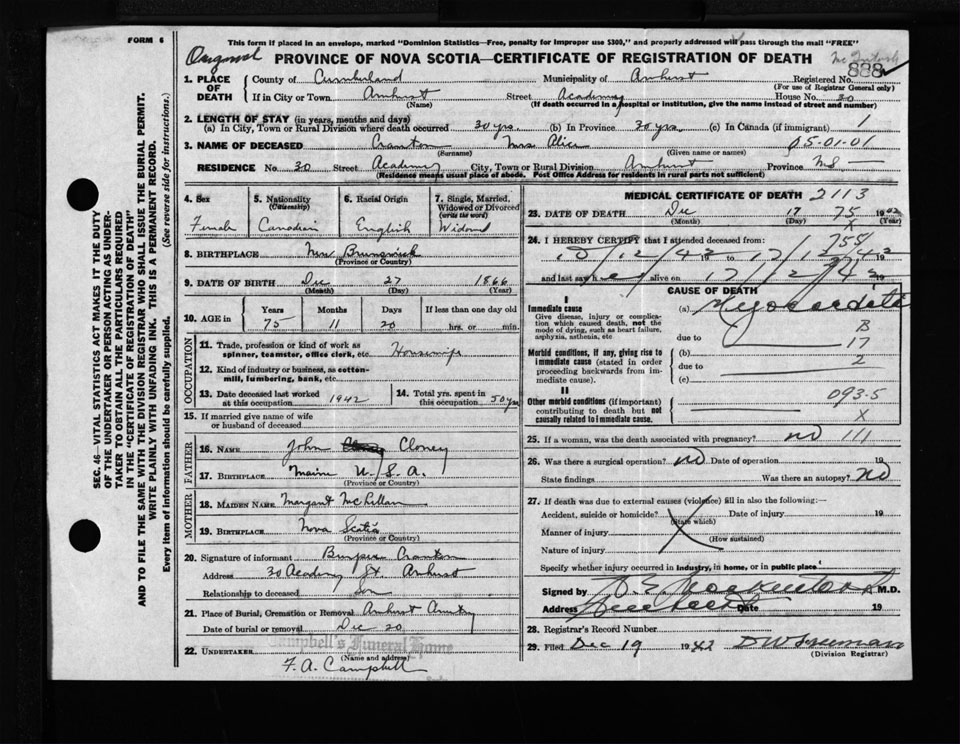 FORM 6
This form if placed in an envelope, marked "Dominion Statistics—Free, penalty for improper use $300," and properly addressed will pass through the mail "FREE"
Original
PROVINCE OF NOVA SCOTIA—CERTIFICATE OF REGISTRATION OF DEATH
888
1. PLACE OF DEATH County of Cumberland Municipality of Amherst Registered No.
(For use of Registrar General only)
If in City or Town Amherst Street Academy House No. 30
(Name) (If death occurred in a hospital or institution, give the name instead of street and number)
2. LENGTH OF STAY (in years, months and days)
(a) In City, Town or Rural Division where death occurred 30 yrs. (b) In Province 30 yrs. (c) In Canada (if immigrant) 1
3. NAME OF DECEASED Cranton Mrs Alice 05-01-01
(Surname) (Given name or names)
RESIDENCE No. 30 Street Academy City, Town or Rural Division Amherst Province NS
(Residence means usual place of abode. Post Office Address for residents in rural parts not sufficient)
4. Sex Female
5. Nationality (Citizenship) Canadian
6. Racial Origin English
7. Single, Married, Widowed or Divorced (write the word) Widowed
8. BIRTHPLACE New Brunswick
(Province or Country)
9. DATE OF BIRTH Dec 27 1866
(Month) (Day) (Year)
10. AGE in Years 75 Months 11 Days 20 If less than one day old hrs. or min.
OCCUPATION
11. Trade, profession or kind of work as spinner, teamster, office clerk, etc. Housewife
12. Kind of industry or business, as cotton-mill, lumbering, bank, etc.
13. Date deceased last worked at this occupation 1942
14. Total yrs. spent in this occupation 50 yrs
15. If married give name of wife or husband of deceased
FATHER
16. NAME John Cloney
17. BIRTHPLACE Maine U.S.A.
(Province or Country)
MOTHER
18. MAIDEN NAME Margaret McLellan
19. BIRTHPLACE Nova Scotia
(Province or Country)
20. Signature of informant Cranton
Address 30 Academy St. Amherst
Relationship to deceased son
21. Place of Burial, Cremation or Removal Amherst
Date of burial or removal Dec 20
Campbell's Funeral Home
22. UNDERTAKER F. A. Campbell
(Name and address)
MEDICAL CERTIFICATE OF DEATH 2113
23. DATE OF DEATH Dec 17 75 19
(Month) (Day) (Year)
24. I HEREBY CERTIFY that I attended deceased from: 755
19 to 19
and last saw her alive on 17/12/42 19
CAUSE OF DEATH
I
Immediate cause
Give disease, injury or complication which caused death, not the mode of dying, such as heart failure, asphyxia, asthenia, etc
(a) Myocarditis
due to B 17
Morbid conditions, if any, giving rise to immediate cause (stated in order proceeding backwards from immediate cause).
(b)
due to 2
(c)
II
Other morbid conditions (if important) contributing to death but not causally related to immediate cause.
093.5
X
25. If a woman, was the death associated with pregnancy? no 111
26. Was there a surgical operation? no Date of operation 19
State findings Was there an autopsy? no
27. If death was due to external causes (violence) fill in also the following:—
Accident, suicide or homicide? Date of injury 19
(State which)
Manner of injury
(How sustained)
Nature of injury
Specify whether injury occurred in industry, in home, or in public place
Signed by M.D.
Address Date 19
28. Registrar's Record Number
29. Filed Dec 19 1942
(Division Registrar)
SEC. 46—VITAL STATISTICS ACT MAKES IT THE DUTY
OF THE UNDERTAKER OR PERSON ACTING AS UNDER-
TAKER TO OBTAIN ALL THE PARTICULARS REQUIRED
IN THE "CERTIFICATE OF REGISTRATION OF DEATH"
AND TO FILE THE SAME WITH THE DIVISION REGISTRAR WHO SHALL ISSUE THE BURIAL PERMIT.
WRITE PLAINLY WITH UNFADING INK. THIS IS A PERMANENT RECORD.
Every item of information should be carefully supplied. (See reverse side for instructions.)